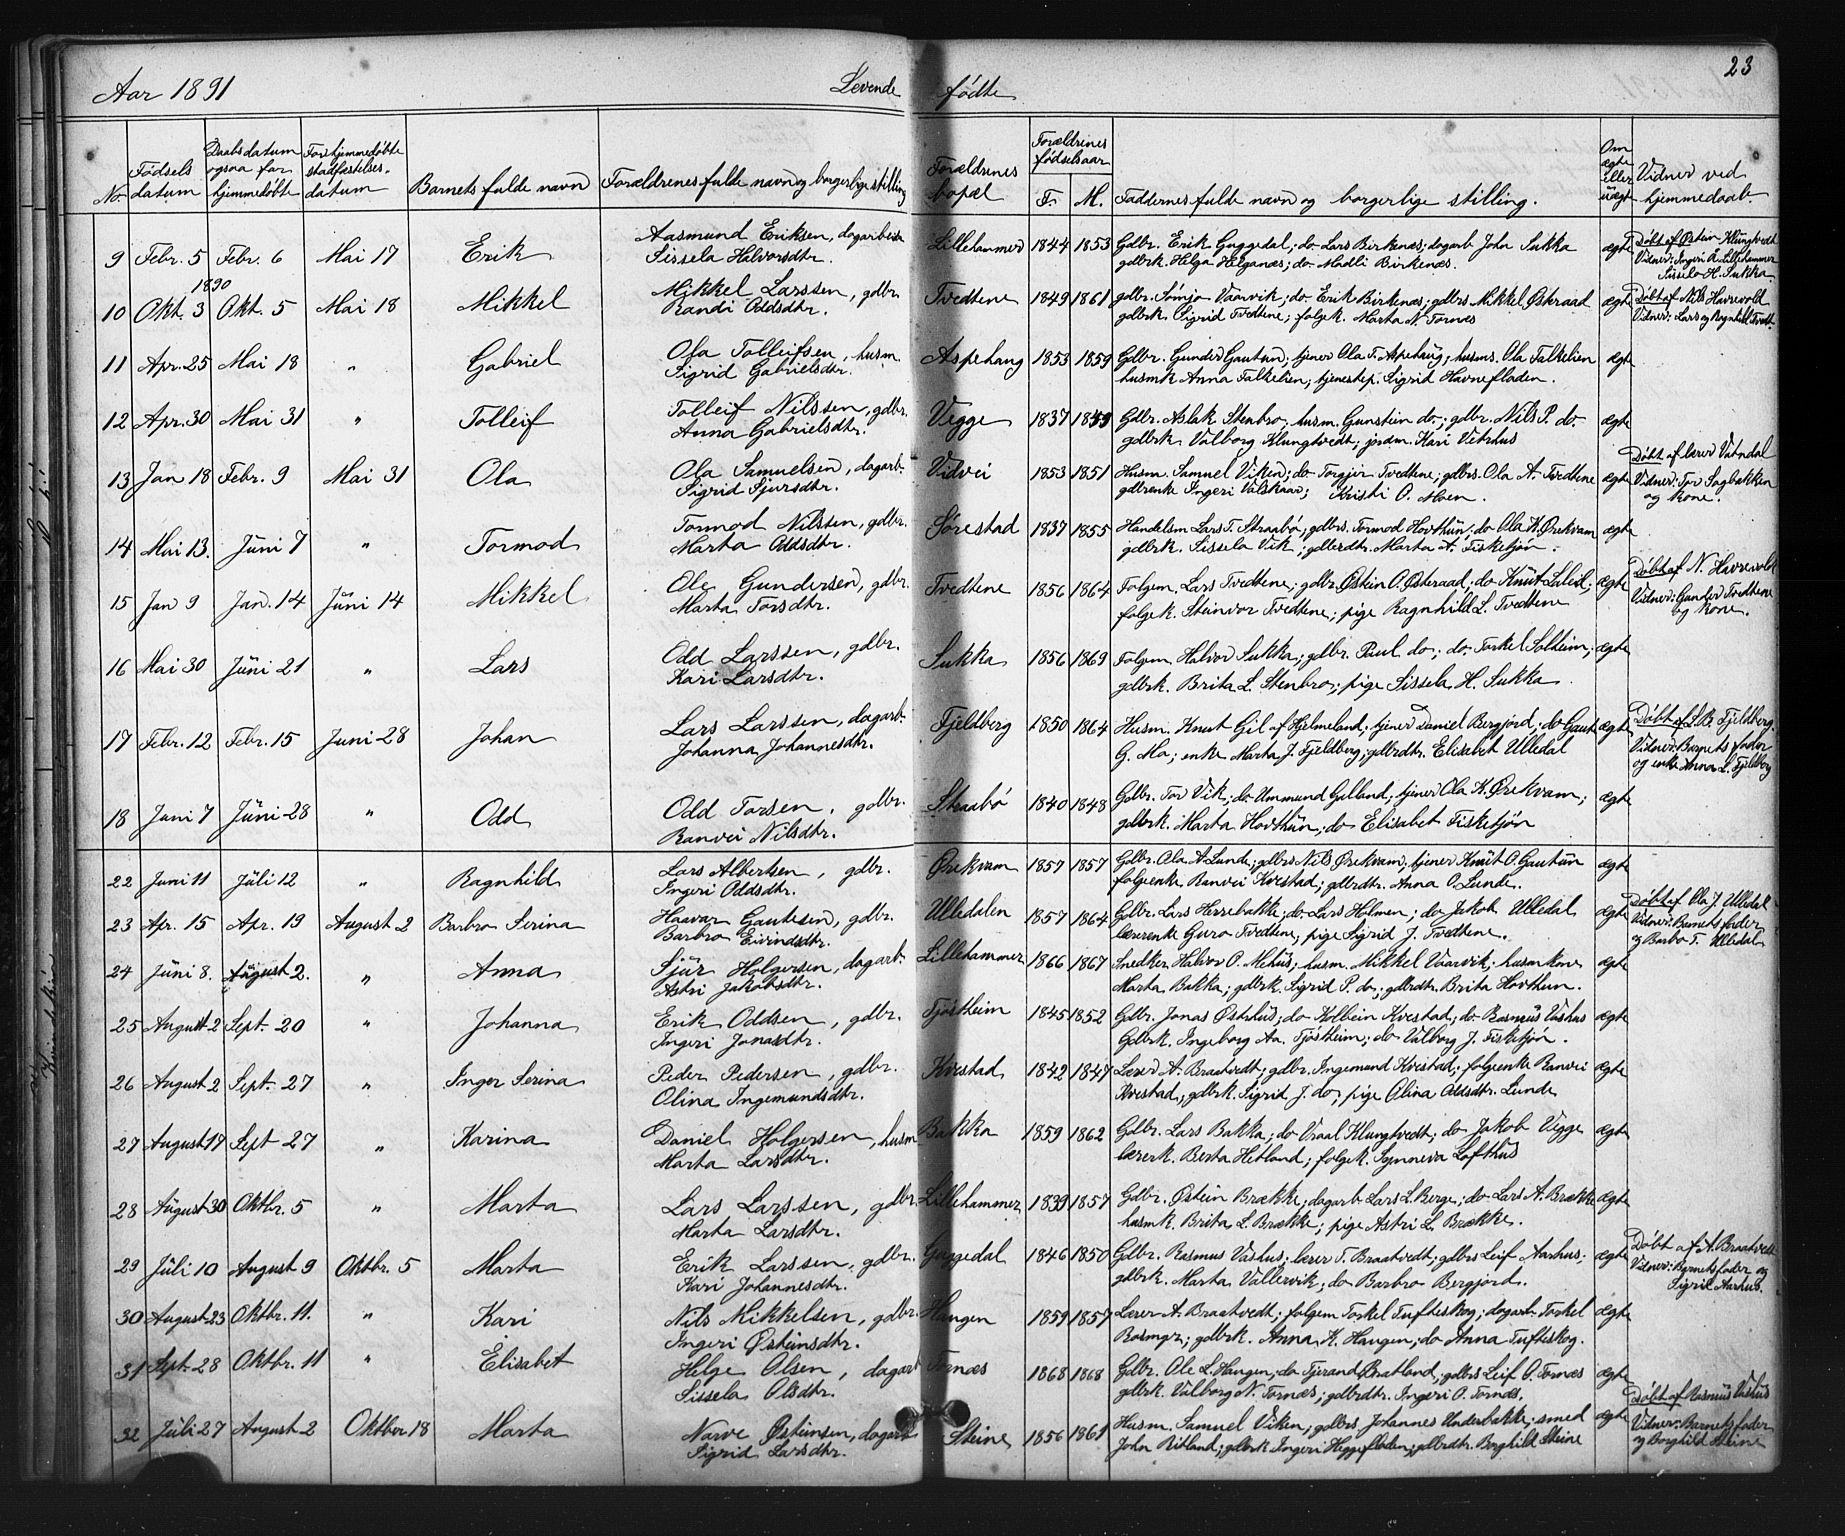 23
Aar 1891 Levende fødte
No. Fødsels datum Daabsdatum ogsaa for hjemmedøbte For hjemmedøbte stadfæstelses-datum Barnets fulde navn Forældrenes fulde navn og borgerlige stilling Forældrenes bopæl Forældrenes fødselsaar F. M. Faddernes fulde navn og borgerlige stilling. Om ægte eller uægte Vidner ved hjemmedaab.
9 Febr. 5 Febr. 6 Mai 17 Erik Aasmund Eriksen, dagarbeider Lillehammer 1844 1853 Gdbr. Erik Guggedal; do Lars Birkenæs; dagarb John Sukka ægte Døbt af Østein Klungtvedt
Sissela Halvorsdtr. gdbrk. Helga Helganæs; do. Madli Birkenæs. Vidner: Ingeri A. Lillehammer
Sissela H. Sukka
1890
10 Okt. 3 Okt. 5 Mai 18 Mikkel Mikkel Larssen, gdbr. Tvedtene 1849 1861 gdbr. Sømje Vaarvik; do Erik Birkenæs; gdbrs Mikkel Østeraad ægte Døbt af Nils Havrevold
Randi Oddsdtr. gdbrk. Sigrid Tvedtene; folgek. Marta N. Tornæs Vidner: Lars og Ragnhild Tvedt.
11 Apr. 25 Mai 18 " Gabriel Ola Tolleifsen, husm. Aspehaug 1853 1859 Gdbr. Gunder Gautun; tjener Ola T. Aspehaug; husms. Ola Falkelien ægte
Sigrid Gabrielsdtr. husmk Anna Falkelien; tjenestep. Sigrid Havrefloden.
12 Apr. 30 Mai 31 " Tolleif Tolleif Nilssen, gdbr. Vegge 1837 1849 Gdbr. Aslak Stenbro; husm. Gunstein do.; gdbr. Nils P. do. ægte
Anna Gabrielsdtr. gdbrk Valborg Klungtvedt; jordm. Kari Vetrhus
13 Jan 18 Febr. 9 Mai 31 Ola Ola Samuelsen, dagarb. Vidvei 1853 1851 Husm. Samuel Viken; do Torgjer Tvedtene; gdbrs. Ola A. Tvedtene ægte Døbt af lærer Vatndal
Sigrid Sjursdtr. gdbrenke Ingeri Valskaar; Kristi O. Moen. Vidner: Tor Sagbakken
og kone.
14 Mai 13. Juni 7 " Tormod Tormod Nilssen, gdbr. Sørestad 1837 1855 Handelsm Lars T. Straabø; gdbrs. Tormod Hovthun; do Ola K. Ørekvam ægte
Marta Oddsdtr. gdbrk. Sissela Vik; gdbrdtr. Marta A. Fisketjøn.
15 Jan 9 Jan. 14 Juni 14 Mikkel Ole Gundersen, gdbr. Tvedtene 1856 1864 Folgem. Lars Tvedtene; gdbr. Østein O. Østeraad; do Knut Laleid; ægte Døbt af N. Havrevold
Marta Torsdtr. folgek. Steinvor Tvedtene; pige Ragnhild L. Tvedtene Vidner: Gunder Tvedtene
og kone.
16 Mai 30 Juni 21 " Lars Odd Larssen, gdbr. Sukka 1856 1869 Folgem. Halvor Sukka; gdbr. Paul do; do. Torkel Solheim; ægte
Kari Larsdtr. gdbrk. Brita L. Stenbro; pige Sissela H. Sukka.
17 Febr. 12 Febr. 15 Juni 28 Johan Lars Larssen, dagarb. Fjeldberg 1850 1864 Husm. Knut Gil af Hjelmeland; tjener Daniel Bergjord; do Gaute ægte Døbt af L. Br. Fjeldberg.
Johanna Johannesdtr. G. Mo; enke Marta J. Fjeldberg; gdbrdtr. Elisabet Ulledal Vidner: Barnets fader
og enke Anna L. Fjeldberg
18 Juni 7 Juni 28 " Odd Odd Torsen, gdbr. Straabø 1840 1848 Gdbr. Tor Vik; do Ummund Gilland; tjener Ola K. Ørekvam; ægte
Ranvei Nilsdtr. gdbrk. Marta Hovthun; do Elisabet Fisketjøn
22 Juni 11 Juli 12 " Ragnhild Lars Albertsen, gdbr. Ørekvam 1857 1857 Gdbr. Ola A Lunde; gdbrs Nils Ørekvam; tjener Knut O. Gautun ægte
Ingeri Oddsdtr. folgenke Ranvei Kvestad; gdbrdtr. Anna O. Lunde.
23 Apr. 15 Apr. 19 August 2 Barbro Serina Haavar Gautesen, gdbr. Ulledalen 1857 1864 Gdbr. Lars Hersebakke; do Lars Holmen; do Jakob Ulledal ægte Døbt af Ola J. Ulledal
Barbro Eivindsdtr. lærerenke Guro Tvedtene; pige Sigrid J. Tvedtene. Vidner: Barnets fader
og Barbro T. Ulledal
24 Juni 8. August 2. " Anna Sjur Holgersen, dagarb. Lillehammer 1866 1867 Snedker Halvor P. Mehus; husm. Mikkel Vaarvik; husmkone ægte
Astri Jakobsdtr. Marta Bakka; gdbrk. Sigrid P. do.; gdbrdtr. Brita Hovthun.
25 August 2 Sept. 20 " Johanna Erik Oddsen, gdbr. Tjøstheim 1845 1852 Gdbr. Jonas Østrhus; do Kolbein Kvestad; do Rasmus Vashus ægte
Ingeri Jonasdtr. Gdbrk. Ingeborg Aa. Tjøstheim; do Valborg J. Fisketjøn.
26 August 2 Sept. 27 " Inger Serina Peder Pedersen, gdbr. Kvestad 1842 1847 Lærer A. Braatvedt; gdbr. Ingemund Kvestad; folgenke Ranvei ægte
Olina Ingemundsdtr. Kvestad; gdbrk. Sigrid J. do; pige Olina Oddsdtr. Lunde
27 August 17 Sept 27 " Karina Daniel Holgersen, husm Bakka 1859 1862 Gdbr. Lars Bakka; do Vraal Klungtvedt; do Jakob Vegge ægte
Marta Larsdtr. lærerk. Berta Hetland; folgek. Synneva Lofthus
28 August 30 Oktbr. 5 " Marta Lars Larssen, gdbr. Lillehammer 1839 1857 Gdbr. Østein Brække; dagarb Lars L. Berge; do Lars A. Brække ægte
Marta Larsdtr. husmk. Brita L. Brække; pige Astri L. Brække.
29 Juli 10 August 9 Oktbr. 5 Marta Erik Larssen, gdbr. Guggedal 1846 1850 Gdbr. Rasmus Vashus; lærer T. Braatvedt; gdbrs Leif Aarhus; ægte Døbt af A. Braatvedt
Kari Johannesdtr. gdbrk. Marta Vallervik; do Barbro Bergjord. Vidner: Barnets fader og
Sigrid Aarhus.
30 August 23 Oktbr. 11. " Kari Nils Mikkelsen, gdbr. Haugen 1859 1857 Lærer A. Braatvedt; folgem Torkel Tufteskog; dagarb. Torkel ægte
Ingeri Østeinsdtr. Rosmyr; gdbrk. Anna K. Haugen; do Anna Tufteskog.
31 Sept. 28 Oktbr. 11 " Elisabet Helge Olsen, dagarb Tornæs 1868 1868 Gdbr. Ole L. Haugen; do Tjerand Bratland; gdbrs Leif O. Tornæs ægte
Sissela Olsdtr. gdbrk. Valborg N. Tornæs; gdbrdtr. Ingeri O. Tornæs.
32 Juli 27 August 2 Oktber 18 Marta Narve Østeinsen, dagarb Steine 1856 1861 Husm. Samuel Viken; gdbrs Johannes Underbakke; smed ægte Døbt af Rasmus Vashus
Sigrid Larsdtr. John Ritland; gdbrk Ingeri Heggefloden; gdbrdtr. Borghild Steine Vidner: Barnets fader
og Borghild Steine